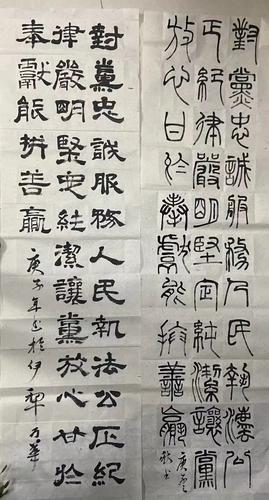 對黨忠誠服務人民執法公
正紀律嚴明堅定純潔讓黨
放心甘於奉獻能拚善贏
庚子
對黨忠誠服務人民執法公正紀
律嚴明堅定純潔讓黨放心甘於
奉獻能拚善贏
庚子年正於伊犁万華